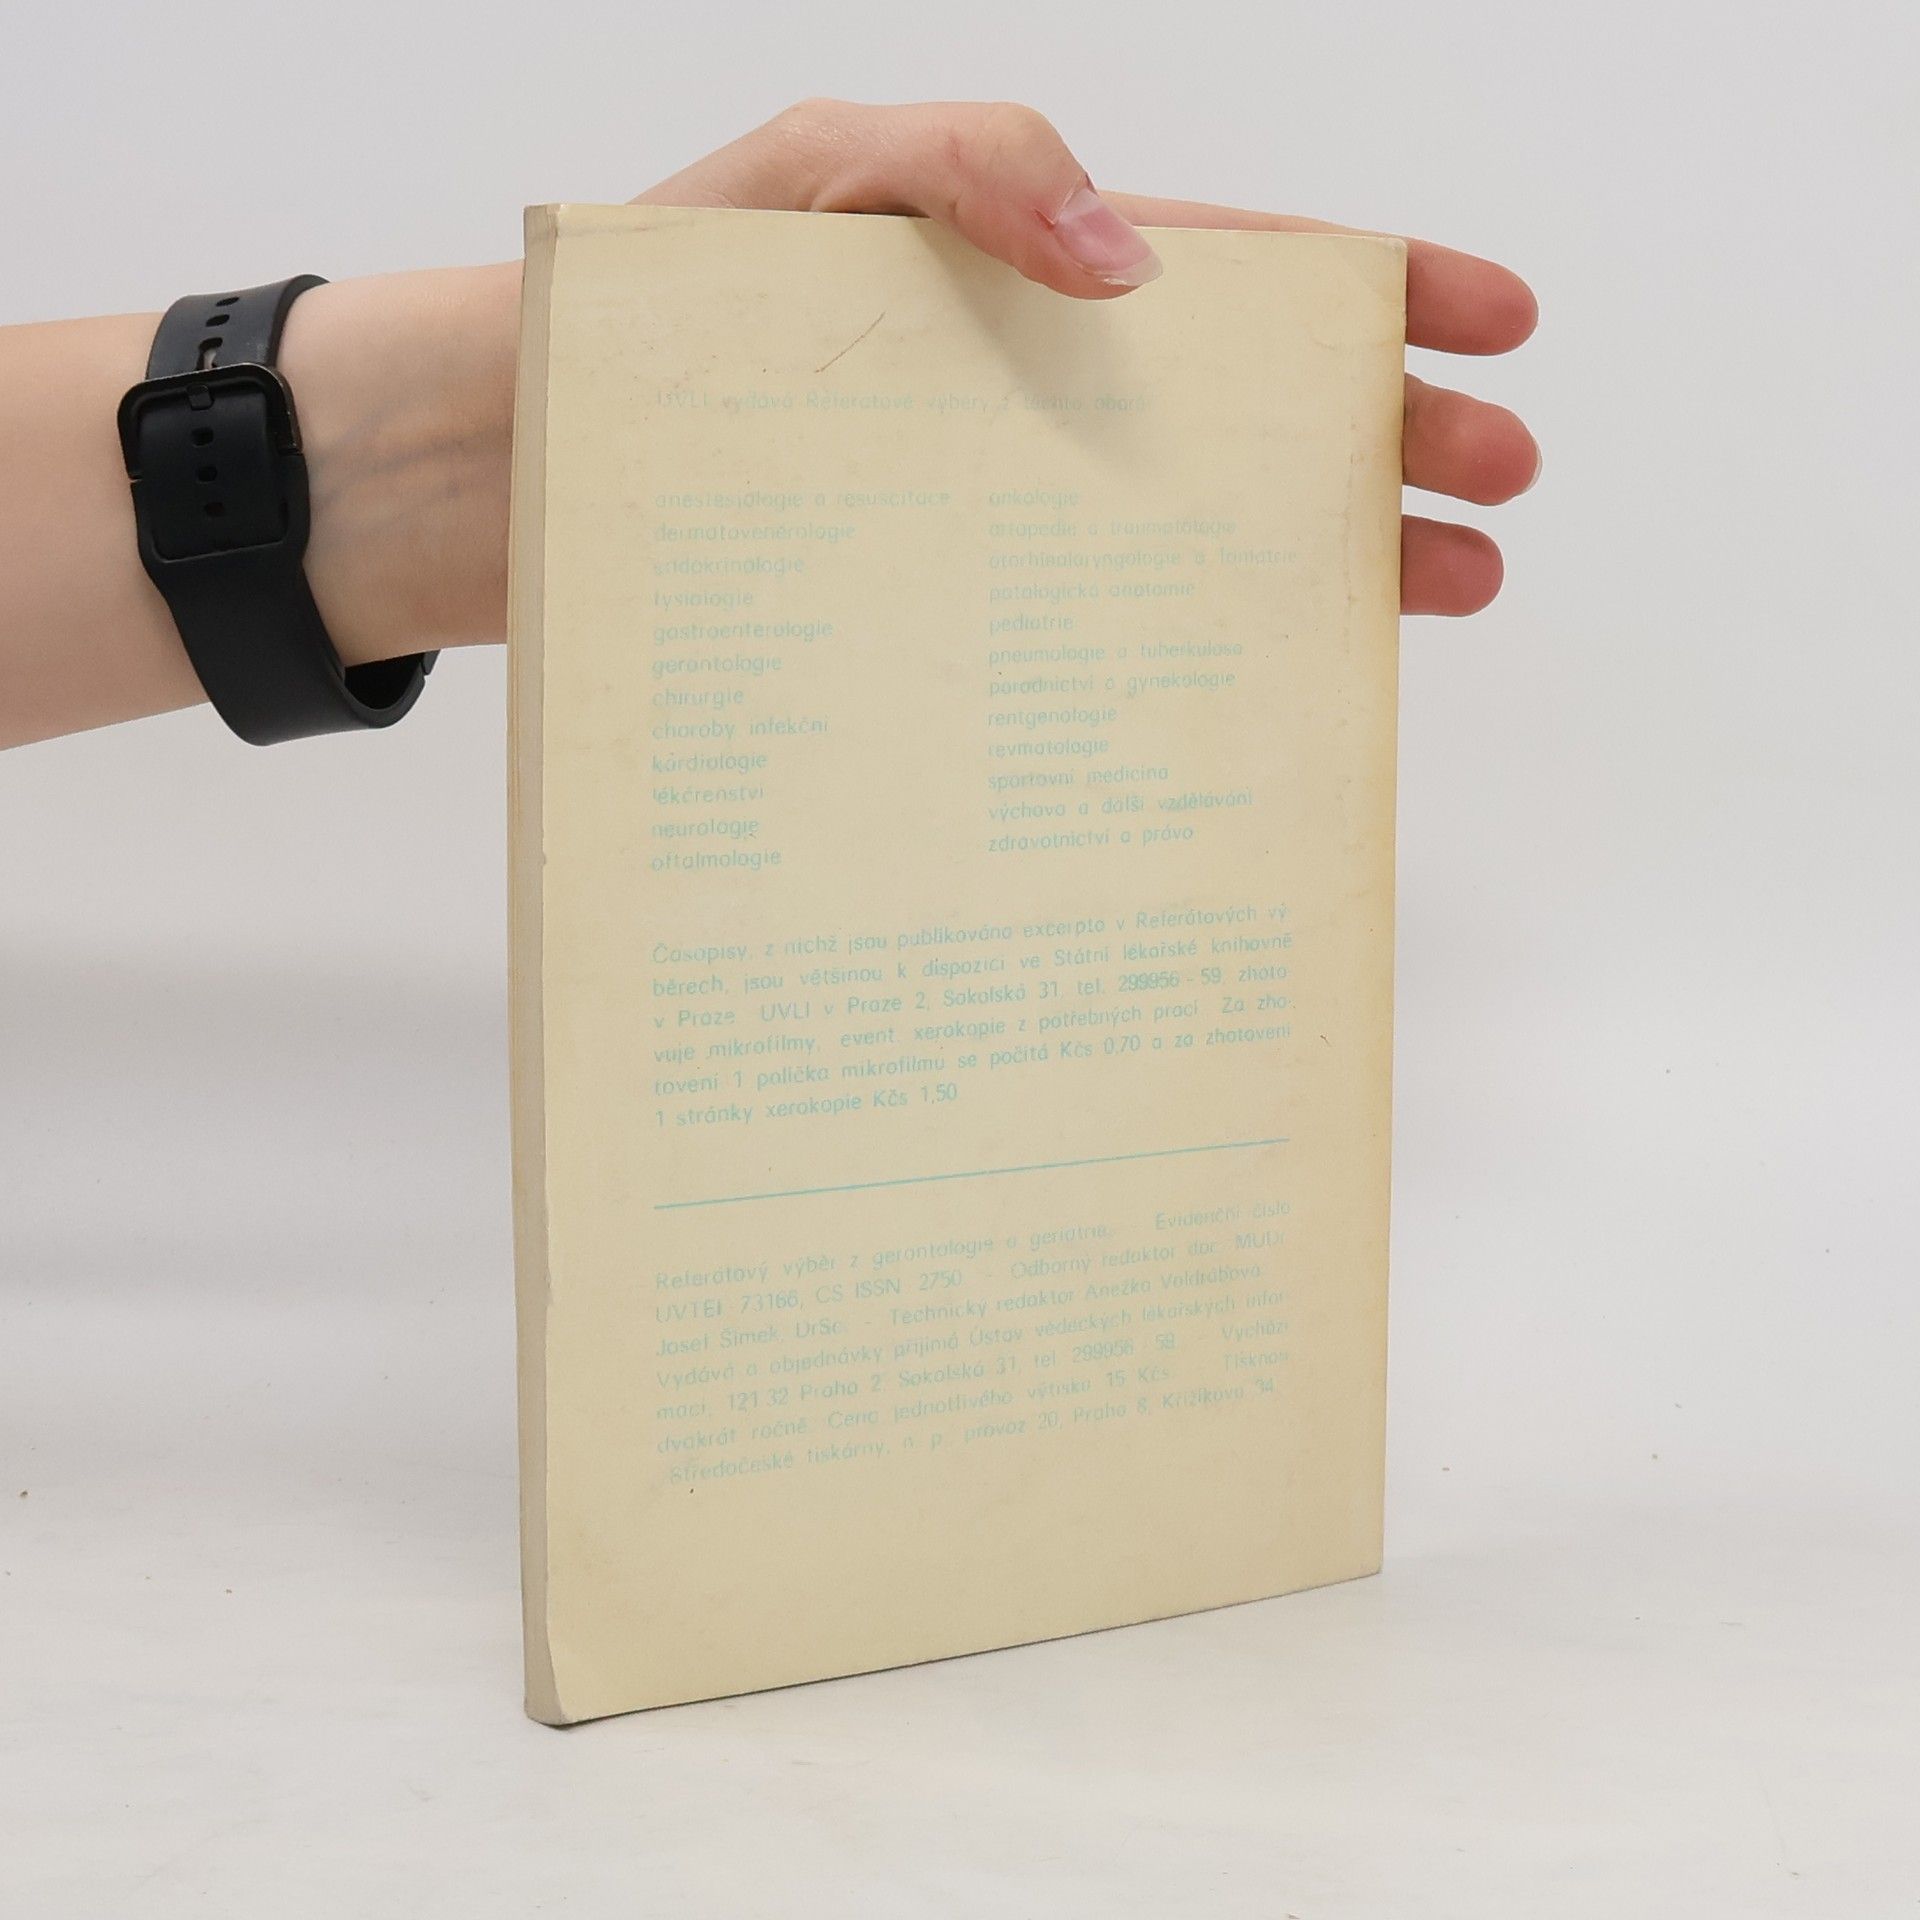 ÚVLI vydává Referátové výběry z těchto oborů
anestesiologie a resuscitace
dermatovenerologie
endokrinologie
fysiologie
gastroenterologie
gerontologie
chirurgie
choroby infekční
kardiologie
lékárenství
neurologie
oftalmologie
onkologie
ortopedie a traumatologie
otorhinolaryngologie a foniatrie
patologická anatomie
pediatrie
pneumologie a tuberkulosa
porodnictví a gynekologie
rentgenologie
revmatologie
sportovní medicína
výchova a další vzdělávání
zdravotnictví a právo
Časopisy, z nichž jsou publikována excerpta v Referátových vý-
běrech, jsou většinou k dispozici ve Státní lékařské knihovně
v Praze. ÚVLI v Praze 2, Sokolská 31, tel. 299956 - 59, zhoto-
vuje mikrofilmy, event. xerokopie z potřebných prací. Za zho-
tovení 1 políčka mikrofilmu se počítá Kčs 0,70 a za zhotovení
1 stránky xerokopie Kčs 1,50
Referátový výběr z gerontologie a geriatrie. - Evidenční číslo
ÚVTEI 73166, CS ISSN 2750 - Odborný redaktor doc. MUDr.
Josef Šimek, DrSc. - Technický redaktor Anežka Voldrábová
Vydává a objednávky přijímá Ústav vědeckých lékařských infor-
mací, 121 32 Praha 2, Sokolská 31, tel. 299956 - 59. - Vychází
dvakrát ročně. Cena jednotlivého výtisku 15 Kčs. - Tisknou
Středočeské tiskárny, n. p., provoz 20, Praha 8, Křižíkova 34